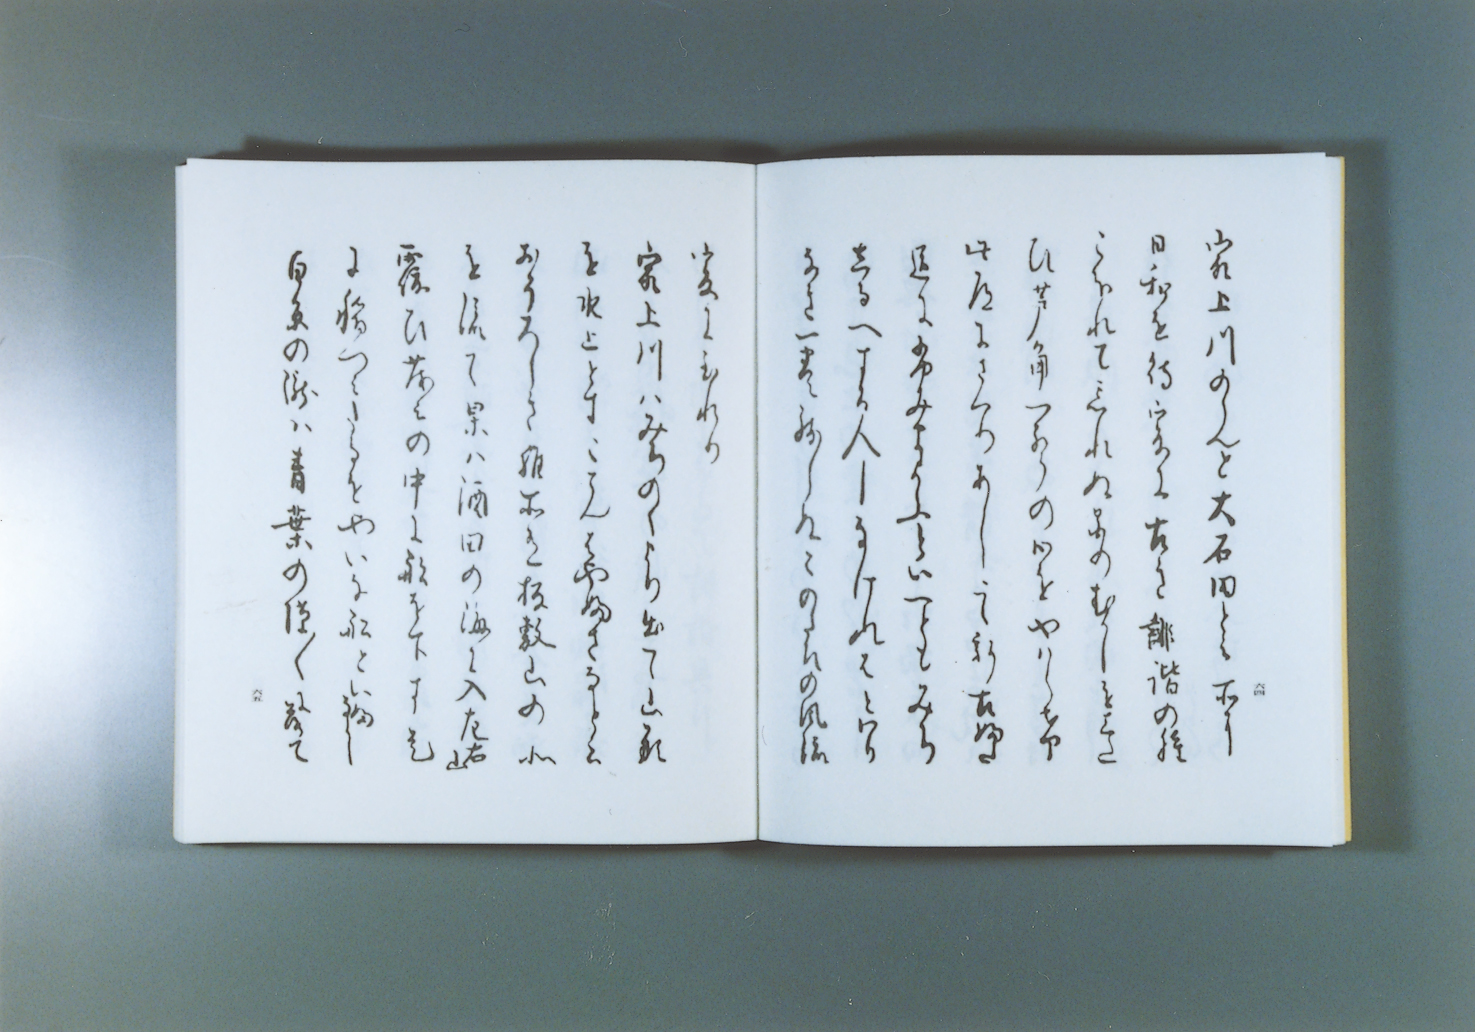 最上川のらんと大石田と云所に
日和を待爰に古き誹諧の種
こほれて忘れぬ花のむかしをした
ひ芦角一聲の心をやはらけ
此道にさくりあしして新古ふた
道にふみまよふといへともみち
しるへする人しなけれはとわり
なき一巻残しぬこのたひの風流
六四
爰にいたれり
最上川はみちのくより出て山形
を水上とすこてんはやふさなと云
おそろしき難所有板敷山の北
を流て果は酒田の海に入左右山
覆ひ茂みの中に舩を下す是
に稲つみたるをやいな舩と云ならし
白糸の瀧は青葉の隙〱に落て
六五